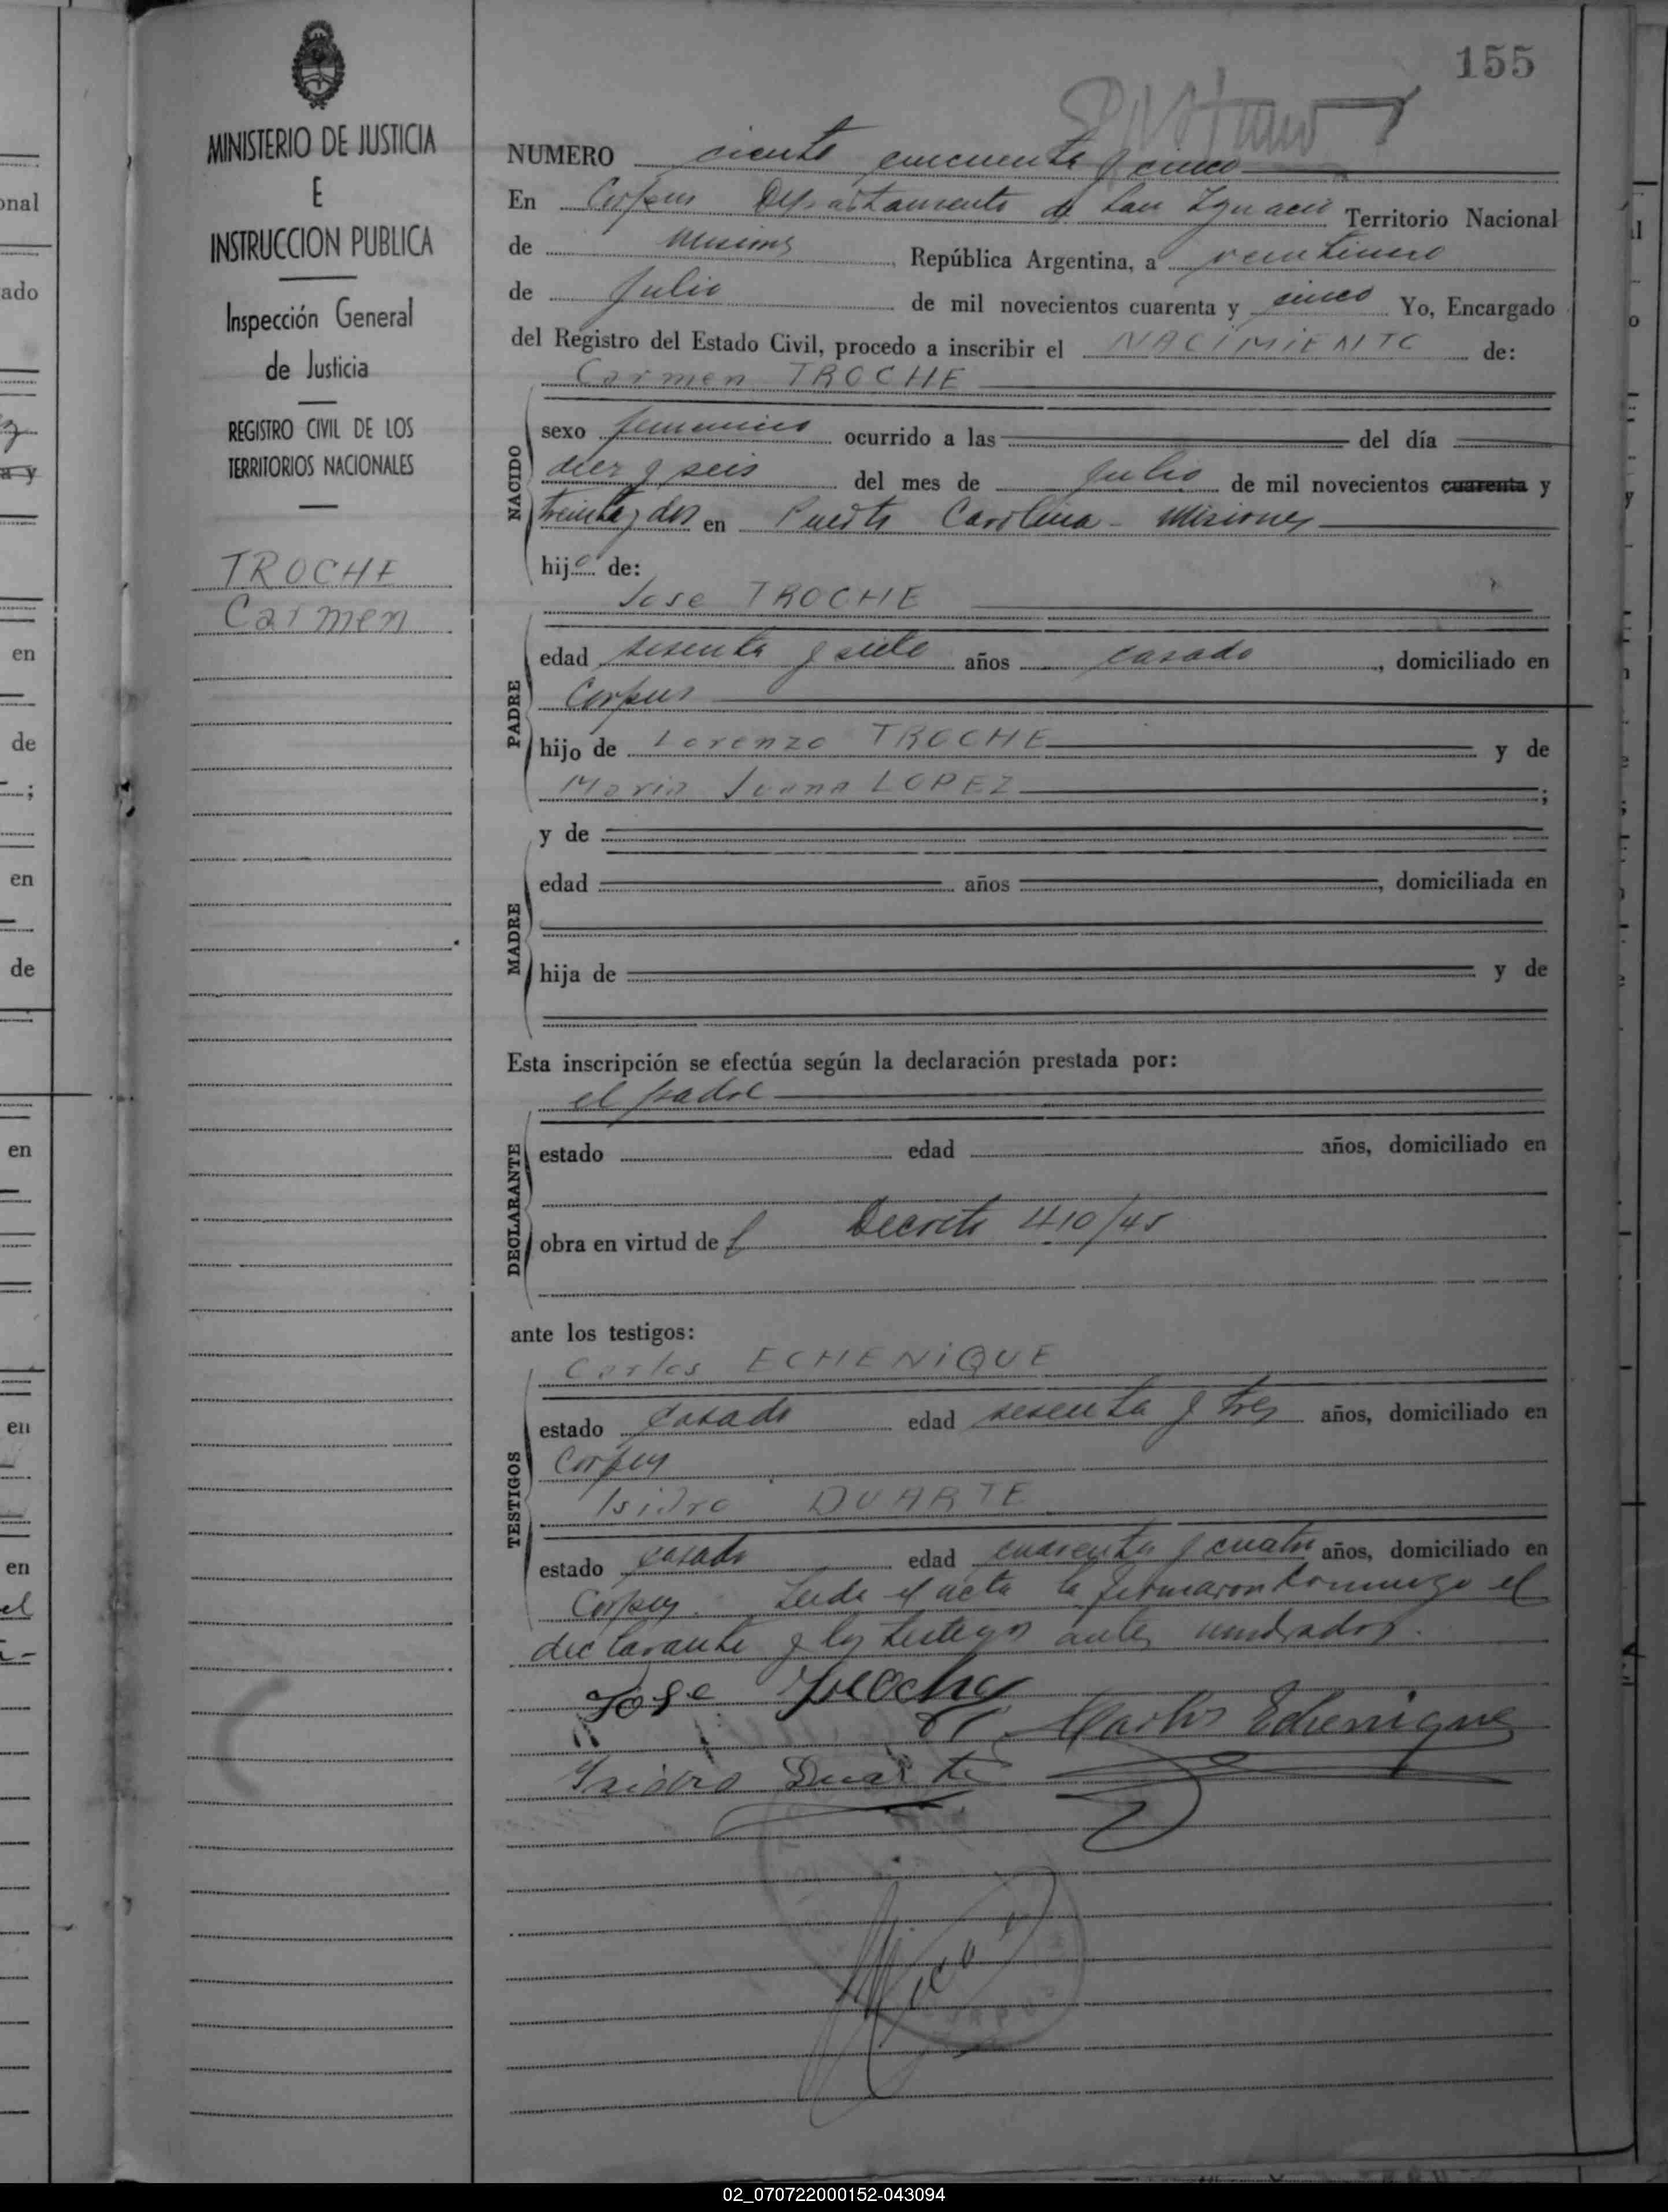 155
MINISTERIO DE JUSTICIA
E
INSTRUCCION PUBLICA
Inspección General
de Justicia
REGISTRO CIVIL DE LOS
TERRITORIOS NACIONALES
TROCHE
Carmen
NUMERO ciento cincuenta y cinco
En Corpus Departamento de San Ignacio Territorio Nacional
de Misiones República Argentina, a veintinueve
de Julio de mil novecientos cuarenta y cinco Yo, Encargado
del Registro del Estado Civil, procedo a inscribir el NACIMIENTO de:
Carmen TROCHE
NACIDO
sexo femenino ocurrido a las del día
diez y seis del mes de Julio de mil novecientos cuarenta y
treinta y dos en Puerto Carolina - Misiones
hij de:
PADRE
Jose TROCHE
edad sesenta y siete años casado, domiciliado en
Corpus
hijo de Lorenzo TROCHE y de
Maria Juana LOPEZ ;
MADRE
y de
edad años , domiciliada en
hija de y de
Esta inscripción se efectúa según la declaración prestada por:
DECLARANTE
el padre
estado edad años, domiciliado en
obra en virtud de Decreto 410/45
ante los testigos:
TESTIGOS
Carlos ECHENIQUE
estado casado edad sesenta y tres años, domiciliado en
Corpus
Isidro DUARTE
estado casado edad cuarenta y cuatro años, domiciliado en
Corpus. Leida el acta la firmaron conmigo el
declarante y los testigos antes nombrados.
Jose Troche
Carlos Echenique
Isidro Duarte
02_070722000152-043094